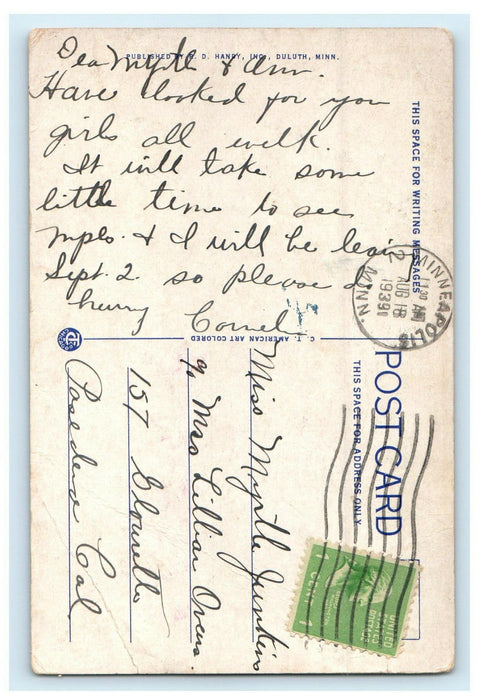 PUBLISHED BY E. D. HANDY, INC., DULUTH, MINN.
Dea Myrtle & Ann.
Have looked for you
girls all week.
It will take some
little time to see
mpls. & I will be leavi
Sept. 2. so please
hurry Corneli
THIS SPACE FOR WRITING MESSAGES
C. T. AMERICAN ART COLORED
MINNEAPOLIS
MINN.
2
11 30 AM
AUG 18
1939
POST CARD
THIS SPACE FOR ADDRESS ONLY
Miss Myrtle Junkin
c/o Mrs Lillian Owens.
157
Pasedena Cal.
UNITED
STATES
POSTAGE
1 CENT 1